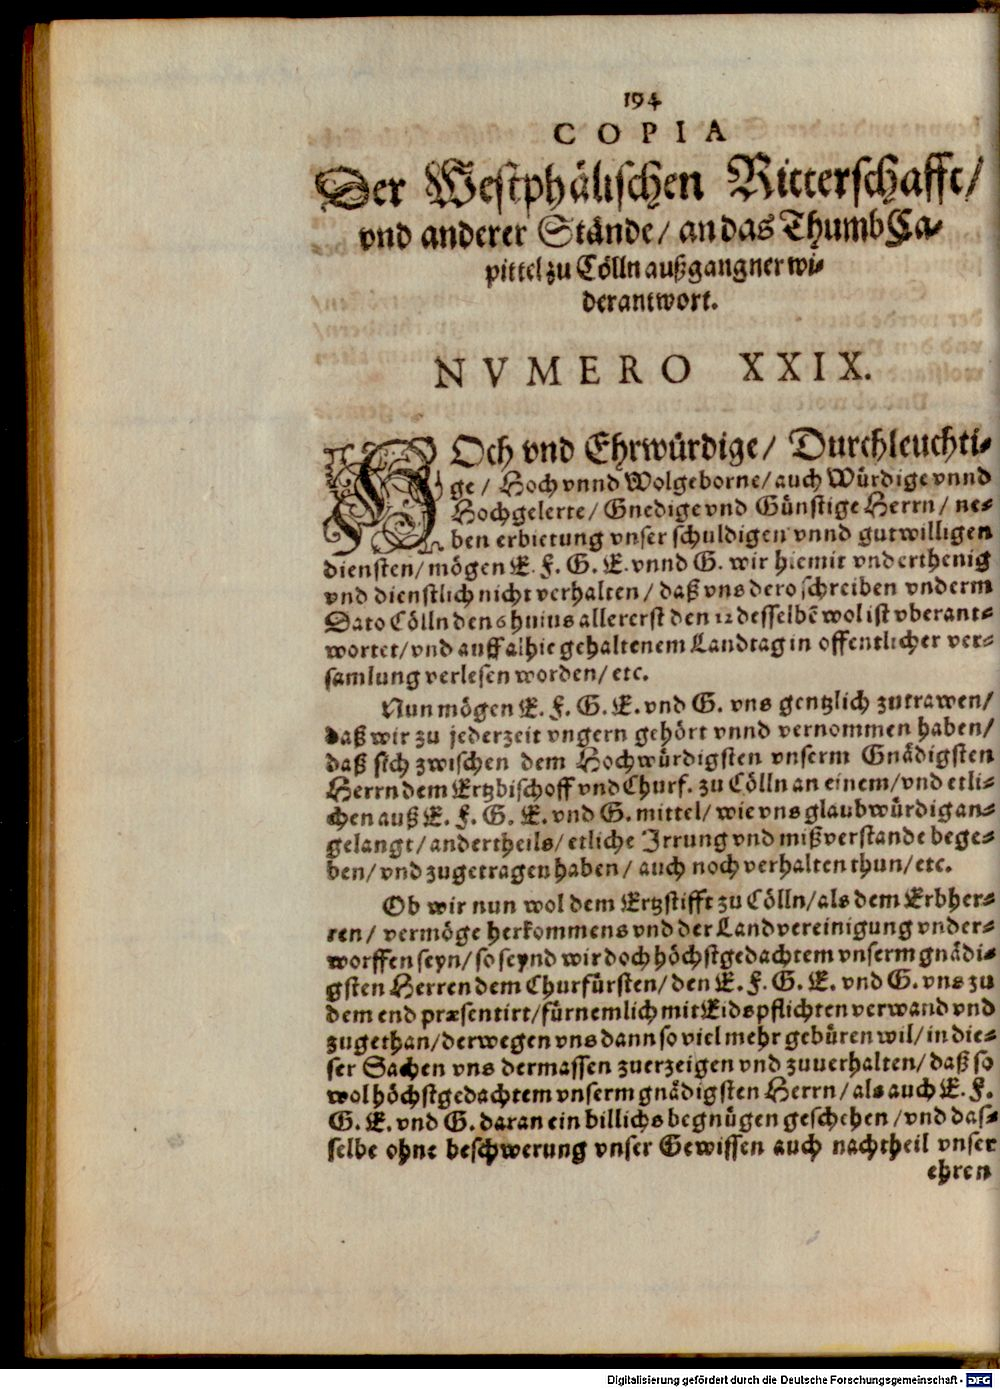 194
COPIA
Der Westphälischen Ritterschafft/
vnd anderer Stände/ an das ThumbCa⸗
pittel zu Cölln außgangner wi⸗
derantwort.
NVMERO XXIX.
HOch vnd Ehrwürdige/ Durchleuchti⸗
ge/ Hoch vnnd Wolgeborne/ auch Würdige vnnd
Hochgelerte/ Gnedige vnd Günstige Herrn/ ne⸗
ben erbietung vnser schuldigen vnnd gutwilligen
diensten/ mögen E. F. G. E. vnnd G. wir hiemit vnderthenig
vnd dienstlich nicht verhalten/ daß vns dero schreiben vnderm
Dato Cölln den 6 huius allererst den 12 desselbē wol ist vberant⸗
wortet/ vnd auff alhie gehaltenem Landtag in offentlicher ver⸗
samlung verlesen worden/ etc.
Nun mögen E. F. G. E. vnd G. vns gentzlich zutrawen/
daß wir zu jederzeit vngern gehört vnnd vernommen haben/
daß sich zwischen dem Hochwürdigsten vnserm Gnädigsten
Herrn dem Ertzbischoff vnd Churf. zu Cölln an einem/ vnd etli⸗
chen auß E. F. G. E. vnd G. mittel/ wie vns glaubwürdig an⸗
gelangt/ andertheils/ etliche Irrung vnd mißverstande bege⸗
ben/ vnd zugetragen haben/ auch noch verhalten thun/ etc.
Ob wir nun wol dem Ertzstifft zu Cölln/ als dem Erbher⸗
ren/ vermöge herkommens vnd der Landvereinigung vnder⸗
worffen seyn/ so seynd wir doch höchstgedachtem vnserm gnädi⸗
gsten Herren dem Churfürsten/ den E. F. G. E. vnd G. vns zu
dem end præsentirt/ fürnemlich mit Eidspflichten verwand vnd
zugethan/ derwegen vns dann so viel mehr gebüren wil/ in die⸗
ser Sachen vns dermassen zuerzeigen vnd zuuerhalten/ daß so
wol höchstgedachtem vnserm gnädigsten Herrn/ als auch E. F.
G. E. vnd G. daran ein billichs begnügen geschehen/ vnd das⸗
selbe ohne beschwerung vnser Gewissen auch nachtheil vnser
ehren
Digitalisierung gefördert durch die Deutsche Forschungsgemeinschaft - DFG